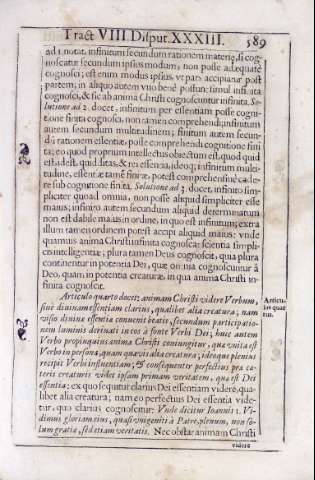 Tract VIII. Disput. XXXIII. 589
ad 1. notat, infinitum secundum rationem materiæ, si cog-
noscatur secundum ipsius modum, non posse adæquatè
cognosci; est enim modus ipsius, vt pars accipiatur post
partem; in aliquo autem vno benè possunt simul infinita
cognosci, & sic ab anima Christi cognoscuntur infinita. So-
lutione ad 2. docet, infinitum per essentiam posse cogni-
tione finita cognosci, non tamen comprehendi; infinitum
autem secundum multitudinem; finitum autem secun-
dù rationem essentiæ, posse comprehendi cognitione fini
ta; eo quod proprium intellectus obiectum est, quod quid
est, idest, quid ditas, & rei essentia, ideoq; infinitum multi-
tudine, essentiæ tamē finiræ, potest comprehensiuè cade-
re sub cognitione finita. Solutione ad 3. docet, infinito sim-
pliciter quoad omnia, non posse aliquid simpliciter esse
maius; infinito autem secundum aliquid determinatum
non est dabile maius in ordine, in quo est infinitum; extra
illum tamen ordinem potest accipi aliquid maius: vnde
quamuis anima Christi infinita cognoscat scientia simpli-
cis intelligentiæ; plura tamen Deus cognoscit, quia plura
continentur in potentia Dei, quæ omnia cognoscuntur à
Deo, quam in potentia creaturæ, in qua anima Christi in-
finita cognoscit.
Articulo quarto docet; animam Christi videre Verbum,
siuè diuinam essentiam clarius, qualibet alia creatura; nam
visio diuinæ essentiæ conuenit beatis, secundum participatio-
nem luminis deriuati in eos à fonte Verbi Dei, huic autem
Verbo propinquius anima Christi coniungitur, quæ vnita est
Verbo in persona, quam quæuis alia creatura; ideoque plenius
recipit Verbi influentiam; & consequenter perfectius præ cæ-
teris creaturis videt ipsam primam veritatem, quæ est Dei
essentia; ex quo sequitur clarius Dei essentiam videre, qua-
libet alia creatura; nam eo perfectus Dei essentia vide-
tur, quo clarius cognoscitur: Vnde dicitur Ioannis 1. Vi-
dimus gloriam eius, quasi vnigeniti à Patre, plenum, non so-
lum gratia, sed etiam veritatis. Nec obstat animam Christi
videre
Articu-
lus quar
tus.